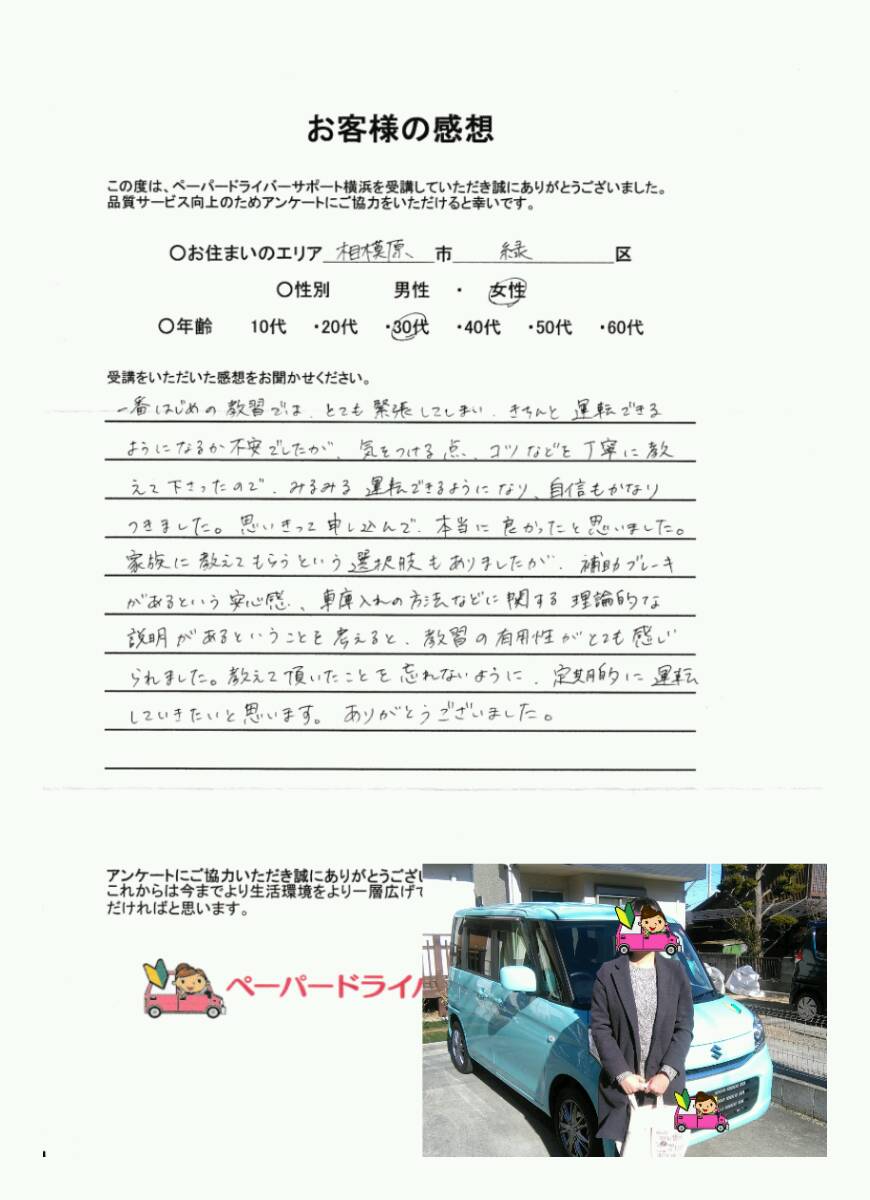 お客様の感想
この度は、ペーパードライバーサポート横浜を受講していただき誠にありがとうございました。
品質サービス向上のためアンケートにご協力をいただけると幸いです。
〇お住まいのエリア 相模原 市 緑 区
〇性別 男性 ・ 女性
〇年齢 10代 ・20代 ・30代 ・40代 ・50代 ・60代
受講をいただいた感想をお聞かせください。
一番はじめの教習では、とても緊張してしまい、きちんと運転できる
ようになるか不安でしたが、気をつける点、コツなどを丁寧に教
えて下さったので、みるみる運転できるようになり、自信もかなり
つきました。思いきって申し込んで、本当に良かったと思いました。
家族に教えてもらうという選択肢もありましたが、補助ブレーキ
があるという安心感、車庫入れの方法などに関する理論的な
説明があるということを考えると、教習の有用性がとても感じ
られました。教えて頂いたことを忘れないように、定期的に運転
していきたいと思います。ありがとうございました。
アンケートにご協力いただき誠にありがとうござい
これからは今までより生活環境をより一層広げて
だければと思います。
ペーパードライバ